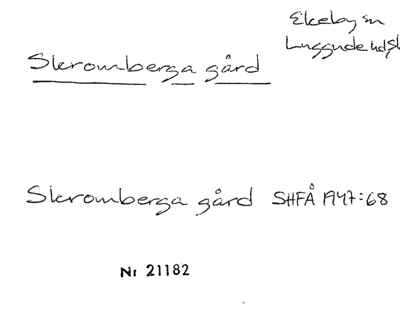 Ekeby sn
Luggude hd, Sk
Skromberga gård
Skromberga gård SHFÅ 1947:68
Nr 21182